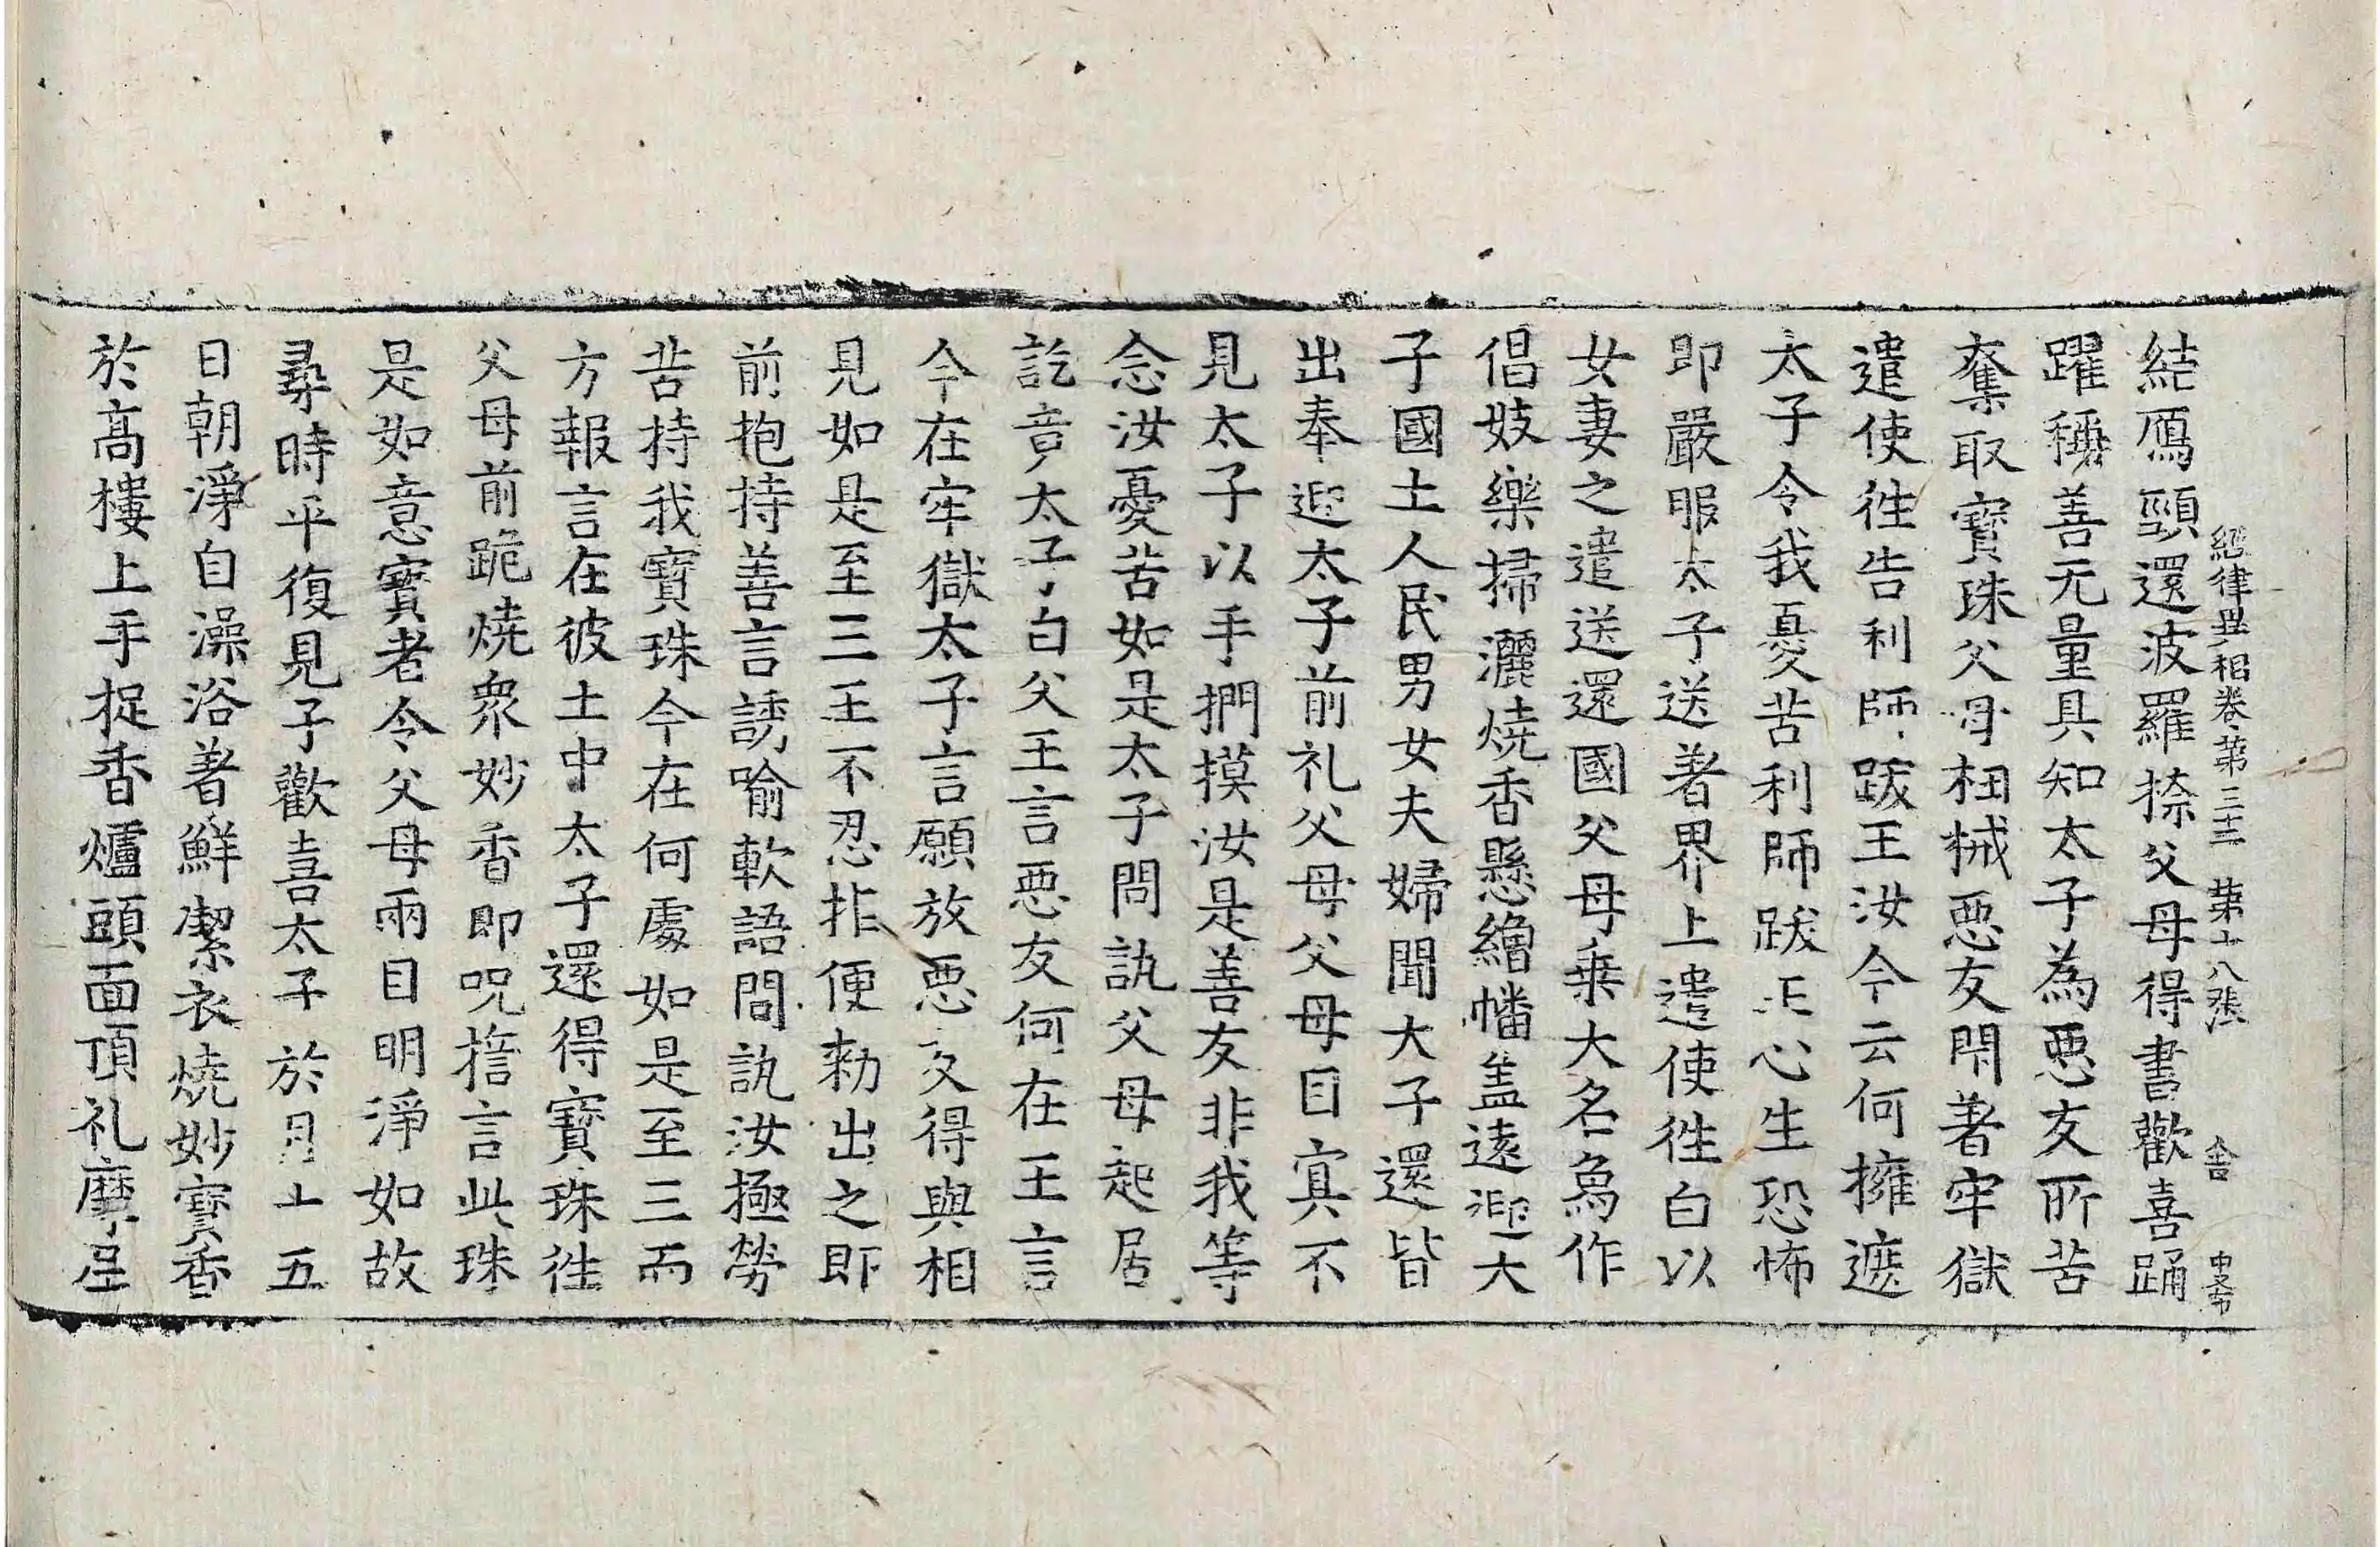 經律異相卷第三十二 第十八張 舍 中文
結鴈頸還波羅捺父母得書歡喜踊
躍稱善无量具知太子為惡友所苦
奪取寶珠父母杻械惡友閇著牢獄
遣使徃告利師跋王汝今云何擁遮
太子令我憂苦利師跋王心生恐怖
即嚴服太子送著界上遣使徃白以
女妻之遣送還國父母乗大名為作
倡妓樂掃灑燒香懸繒幡盖遠迎大
子國土人民男女夫婦聞大子還皆
出奉迎太子前礼父母父母目寘不
見太子以手捫摸汝是善友非我等
念汝憂苦如是太子問訊父母起居
訖竟太子白父王言惡友何在王言
今在牢獄太子言願放惡友得與相
見如是至三王不忍拒便勑出之即
前抱持善言誘喻軟語問訊汝極勞
苦持我寶珠今在何處如是至三而
方報言在彼土中太子還得寶珠徃
父母前跪燒衆妙香即呪誓言此珠
是如意寶者令父母兩目明淨如故
尋時平復見子歡喜太子於月十五
日朝淨自澡浴著鮮潔衣燒妙寶香
於高樓上手捉香爐頭面頂礼摩尼